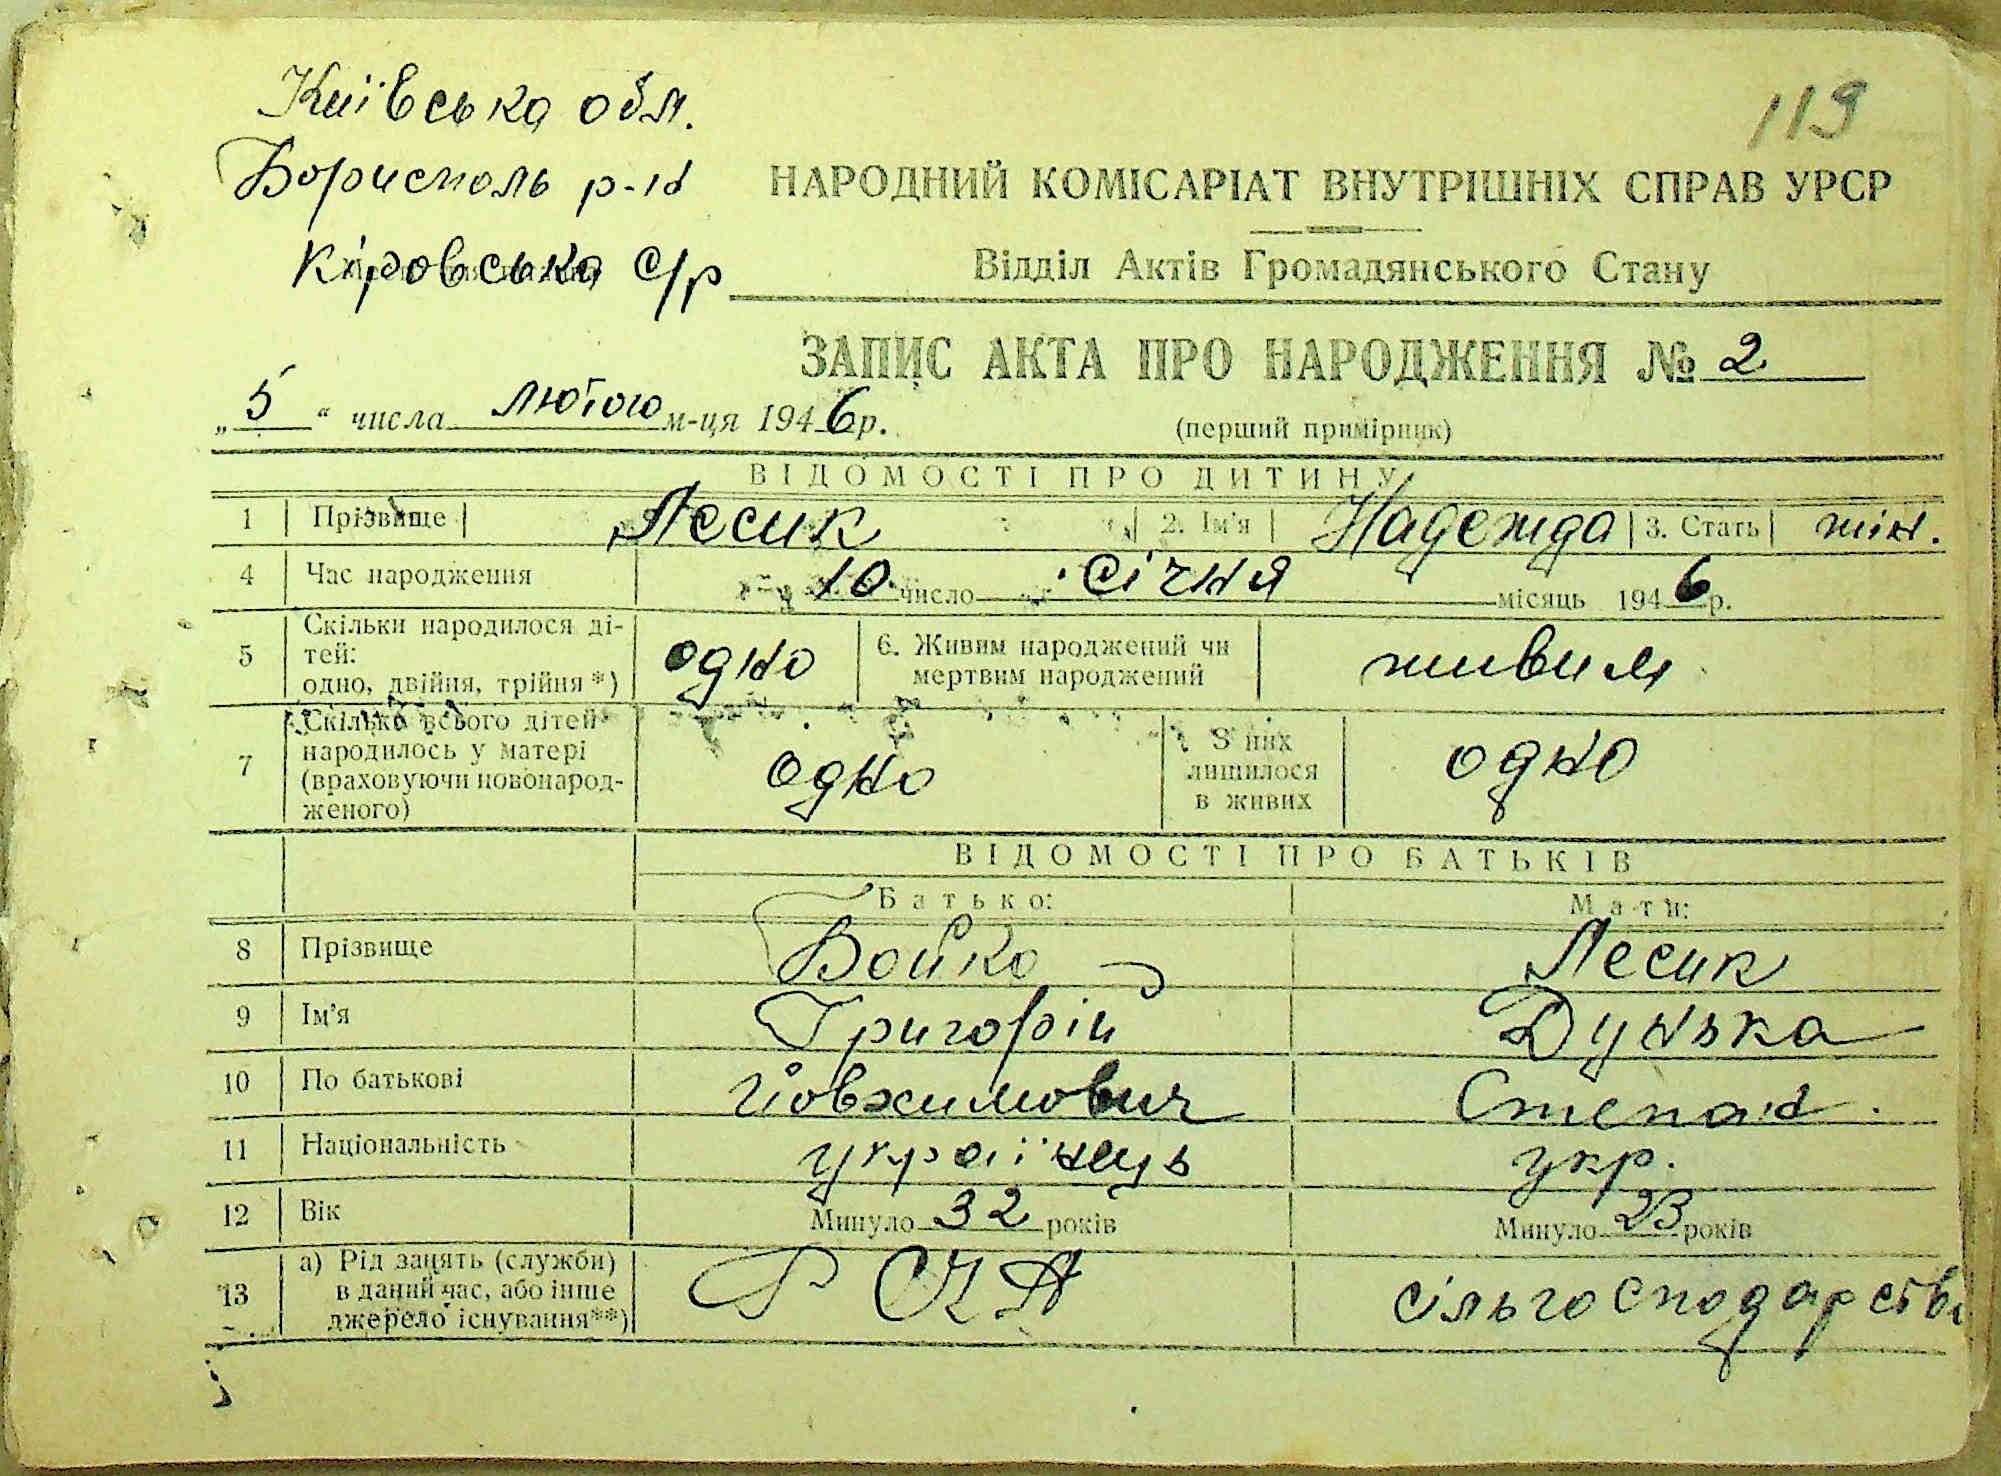 Київська обл.
119
Борисполь р-н
НАРОДНИЙ КОМІСАРІАТ ВНУТРІШНІХ СПРАВ УРСР
Кіровська с/р
Відділ Актів Громадянського Стану
ЗАПИС АКТА ПРО НАРОДЖЕННЯ № 2
„5“ числа лютого м-ця 1946 р.
(перший примірник)
ВІДОМОСТІ ПРО ДИТИНУ
1 Прізвище Лесик 2. Ім'я Надежда 3. Стать жін.
4 Час народження 10 число січня місяць 1946 р.
5 Скільки народилося ді-
тей:
одно, двійня, трійня*) одно 6. Живим народжений чи
мертвим народжений живим
7 Скілько всього дітей
народилось у матері
(враховуючи новонарод-
женого) одно З них
лишилося
в живих одно
ВІДОМОСТІ ПРО БАТЬКІВ
Батько: Мати:
8 Прізвище Бойко Лесик
9 Ім'я Григорій Дунька
10 По батькові Йовхимович Степан.
11 Національність українець укр.
12 Вік Минуло 32 років Минуло 23 років
13 а) Рід занять (служби)
в даний час, або інше
джерело існування**) РСЧА сільгосподарств